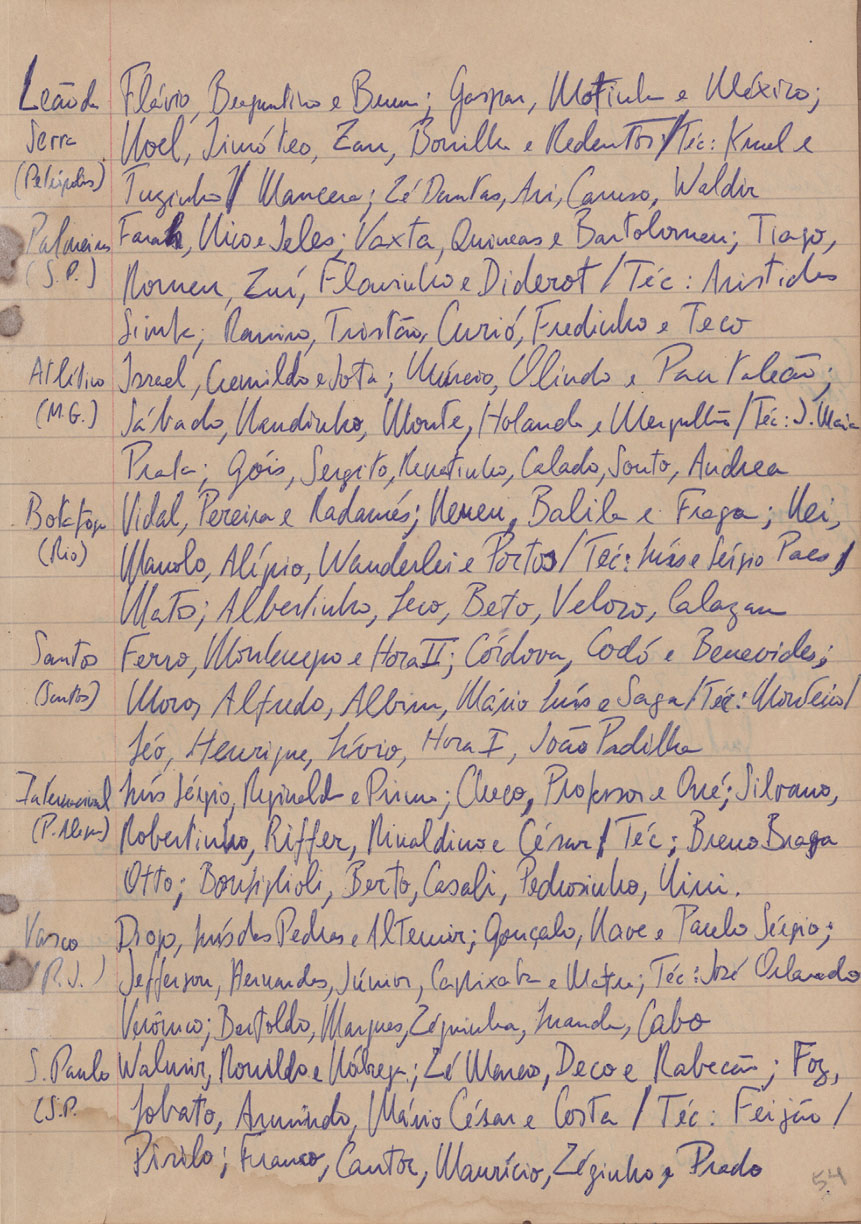 Leão da Flávio, Bergantino e Brum; Gaspar, Motinha e México;
Serra Noel, Timóteo, Zan, Bonilha e Redentor / Téc: Knel e
(Petrópolis) Tuginho / Mancera; Zé Dantas, Ari, Caruso, Waldir
Palmeiras Farah, Nico e Teles; Vaxta, Quineas e Bartolomeu; Tiago,
(S.P.) Romeu, Zuí, Flavinho e Diderot / Téc: Aristides
Ramiro, Tristão, Curió, Fredinho e Teco
Atlético Israel, Cremildo e Jota; Múcio, Olindo e Pantaleão;
(M.G.) Sábado, Nandinho, Monte, Holanda e Mergulhão / Téc: J. Maia
Prata; Góis, Sergito, Renatinho, Calado, Souto, Andrea
Botafogo Vidal, Pereira e Radamés; Nemen, Balila e Fraga; Nei,
(Rio) Manolo, Alípio, Wanderlei e Portos / Téc: Luís e Sérgio Paes /
Mato; Albertinho, Leco, Beto, Velozo, Calazan
Santos Ferro, Montenegro e Hora II; Córdova, Codó e Benevides;
(Santos) Moro, Alfredo, Albim, Mário Luís e Saga / Téc: Monteiro /
Léo, Henrique, Lívio, Hora I, João Padilha
Internacional Luís Sérgio, Reginaldo e Prisma; Checo, Professor e Oné; Silvano,
(P. Alegre) Robertinho, Riffer, Rinaldino e César / Téc; Breno Braga
Otto; Bonfiglioli, Berto, Casali, Pedrosinho, Nini.
Vasco Diogo, Luís das Pedras e Altemir; Gonçalo, Nave e Paulo Sérgio;
(R.J.) Jefferson, Hernandes, Júnior, Capixaba e Matu; Téc: José Orlando
Verônico; Bertoldo, Marques, Zéquinha, Luanda, Cabo
S. Paulo Walmir, Ronildo e Nóbrega; Zé Marco, Deco e Rabecão; Foz,
(S.P. Lobato, Armindo, Mário César e Costa / Téc: Feijão /
Pirilo; Franco, Cantor, Maurício, Zéginho e Prado
54